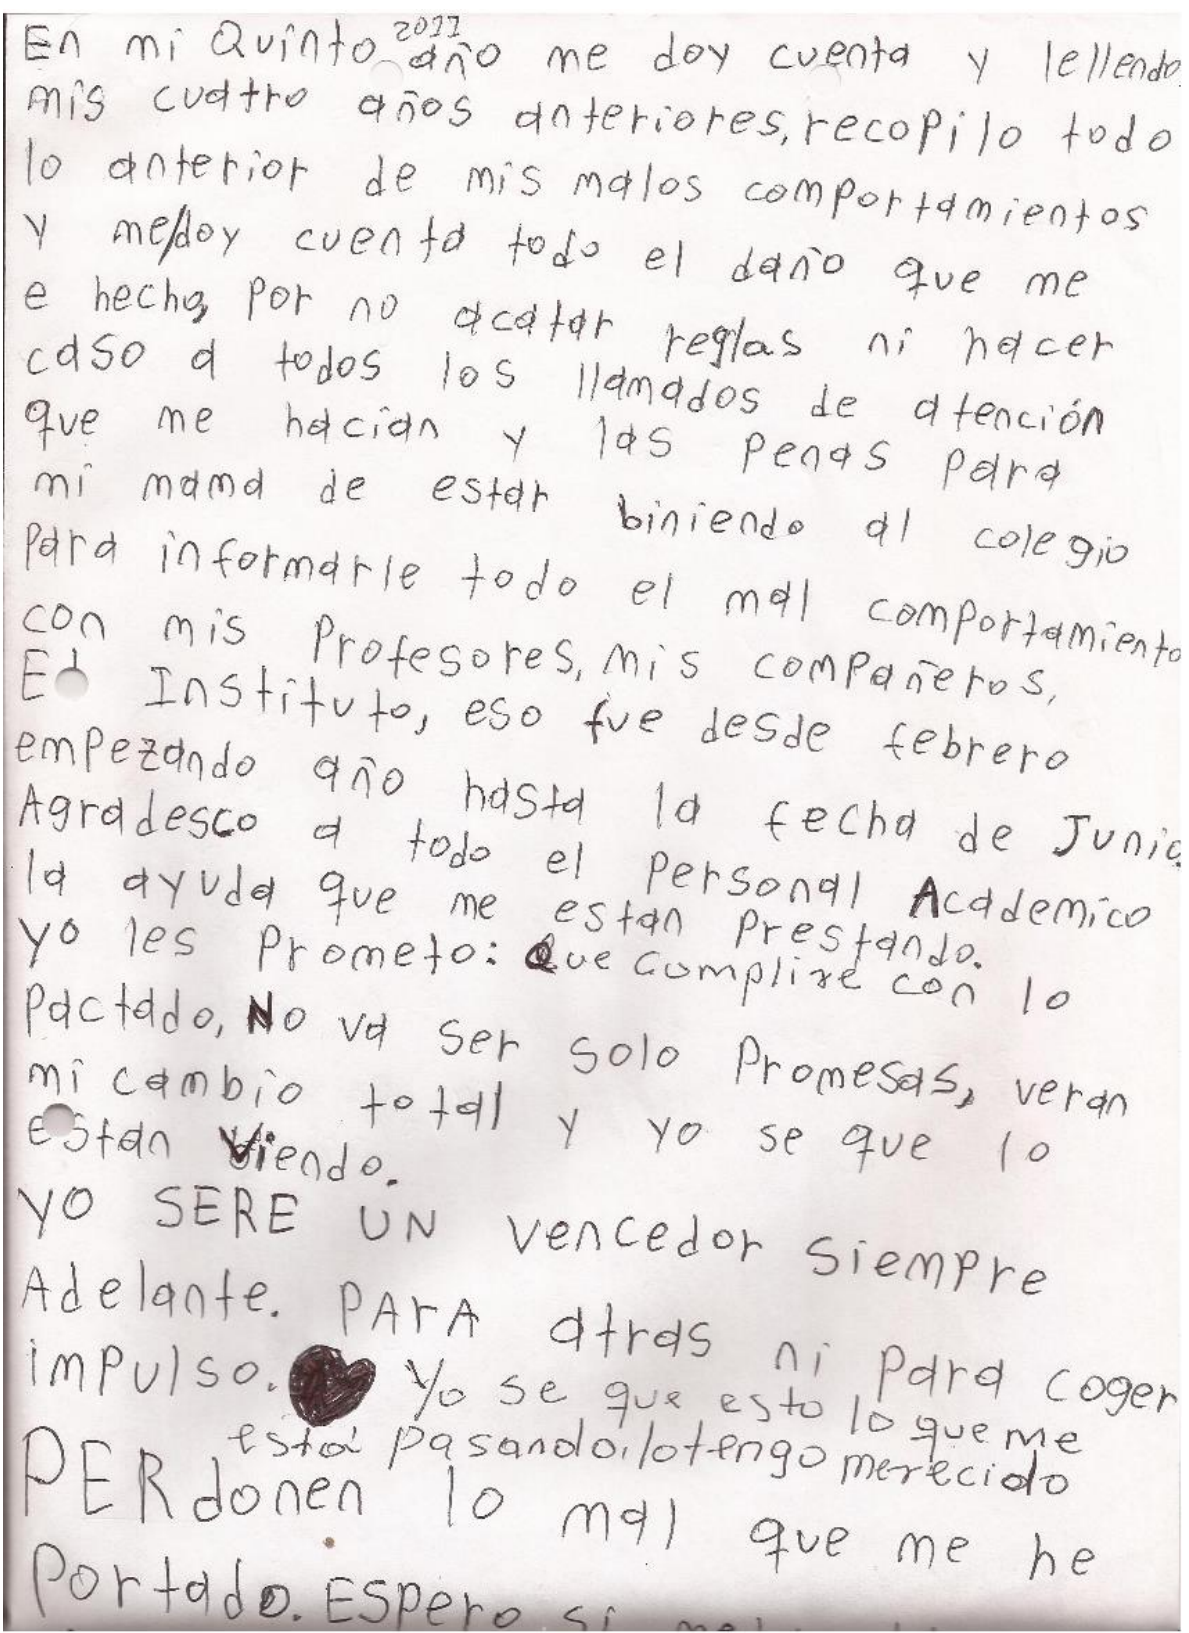 En mi Quinto 2011 año me doy cuenta y lellendo
mis cuatro años anteriores, recopilo todo
lo anterior de mis malos comportamientos
y me/doy cuenta todo el daño que me
e hecho, por no acatar reglas ni hacer
caso a todos los llamados de atención
que me hacian y las penas para
mi mama de estar biniendo al colegio
para informarle todo el mal comportamiento
con mis Profesores, mis compañeros,
Instituto, eso fue desde febrero
empezando año hasta la fecha de Junio.
Agradesco a todo el Personal Academico
la ayuda que me estan Prestando.
yo les Prometo: Que cumplire con lo
Pactado, No va ser solo Promesas, veran
mi cambio total y yo se que lo
estan Viendo.
yo SERE UN vencedor siempre
Adelante. PArA atras ni para coger
impulso. Yo se que esto lo que me
está pasando, lo tengo merecido
PERdonen lo mal que me he
Portado. ESpero si